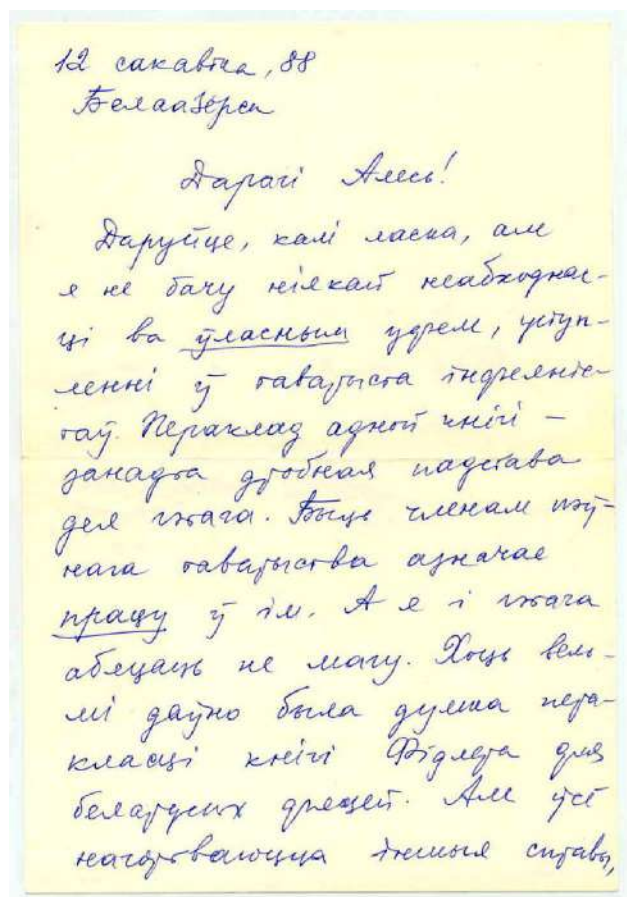 12 сакавіка, 88
Белаазёрск
Дарагі Алесь!
Даруйце, калі ласка, але
я не бачу ніякай неабходнас-
ці ва ўласным удзеле, уступ-
ленні ў таварыста індзеяніс-
таў. Пераклад адной кнігі –
занадта дробная падстава
дзеля гэтага. Быць членам пэў-
нага таварыства азначае
працу ў ім. А я і гэтага
абяцаць не магу. Хоць вель-
мі даўно была думка пера-
класці кнігі Фідлера для
беларускіх дзяцей. Але ўсё
иншыя справы,